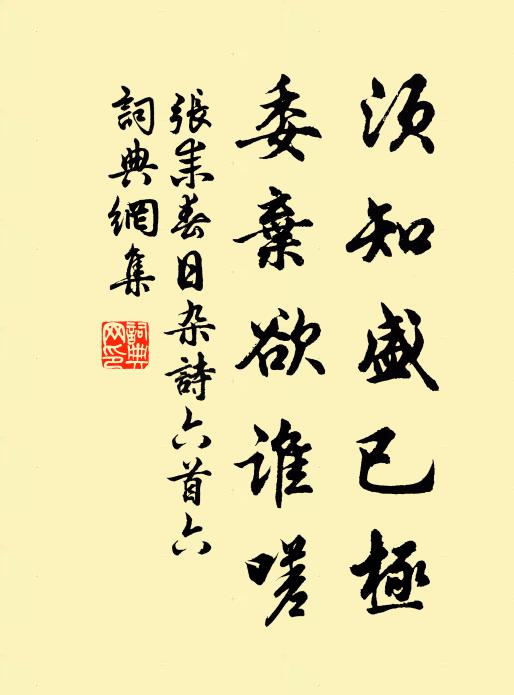 须知盛已極
委棄欲誰嗟
張耒春日杂詩六首六
詞典網集
詞典
网印